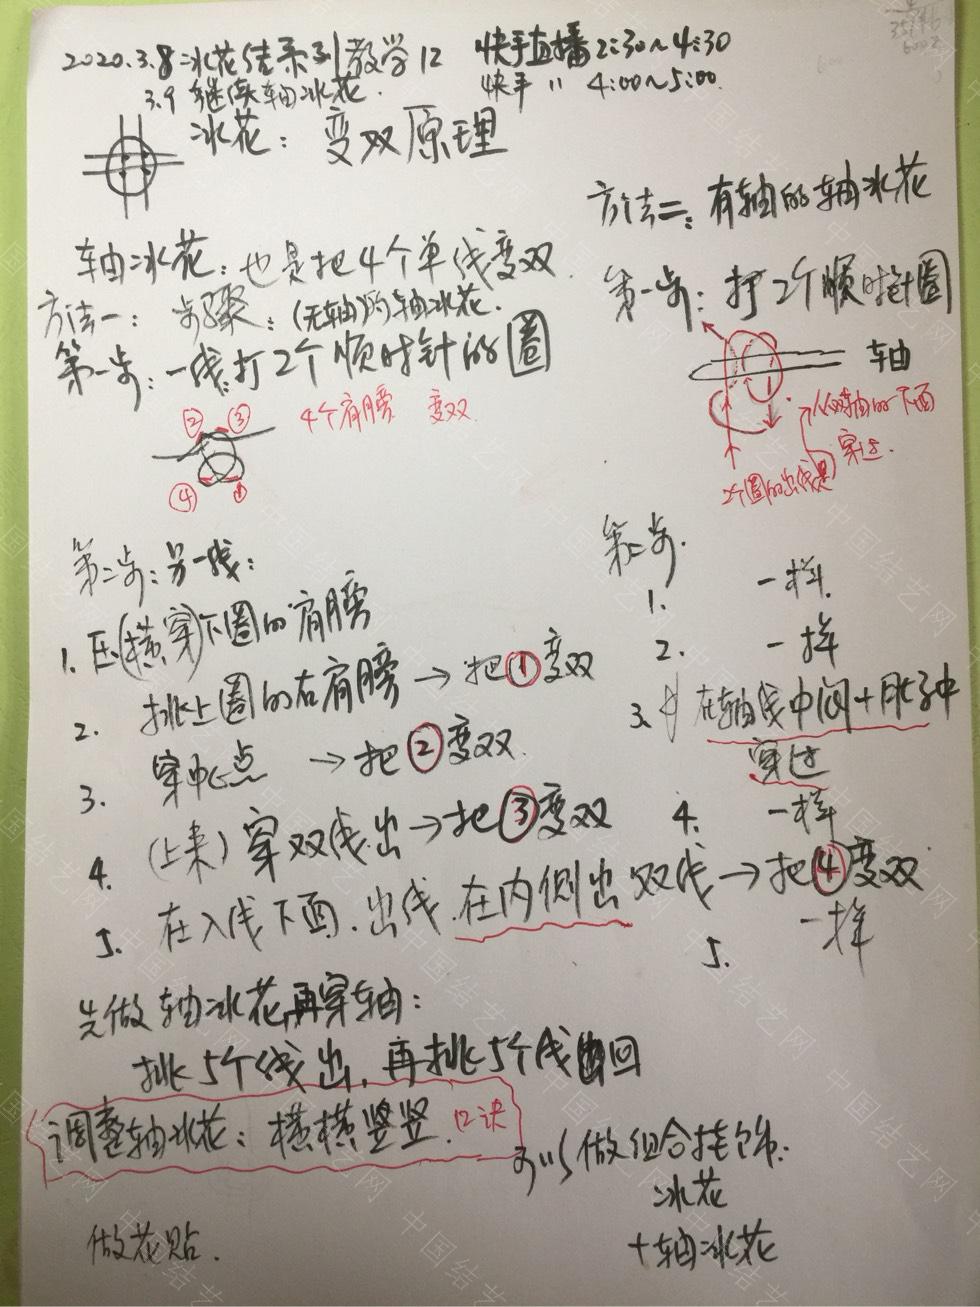 2020.3.8冰花结系列教学12
快手直播2:30~4:30
3.9 继续轴冰花.
快手 〃 4:00~5:00.
冰花：变双原理
轴冰花：也是把4个单线变双
方法一：步骤：(无轴)的轴冰花.
第一步：一线打2个顺时针的圈
② ③ 4个肩膀 变双
④ ①
第二步：另一线：
1. 压(横穿)下圈的肩膀
2. 挑上圈的右肩膀→把①变双
3. 穿中心点 →把②变双
4. (上来)穿双线出→把③变双
5. 在入线下面.出线.在内侧出双线→把④变双
先做轴冰花再穿轴：
挑5个线出，再挑5个线回
调整轴冰花：横横竖竖.口诀
做花贴.
方法二：有轴的轴冰花
第一步：打2个顺时针圈
轴
从轴的下面
穿过.
2个圈的出线是
第二步.
1. 一样.
2. 一样
3. 在轴线中间+肚子中
穿过
4. 一样
5. 一样
可以做组合挂饰.
冰花
+轴冰花
中国结艺网